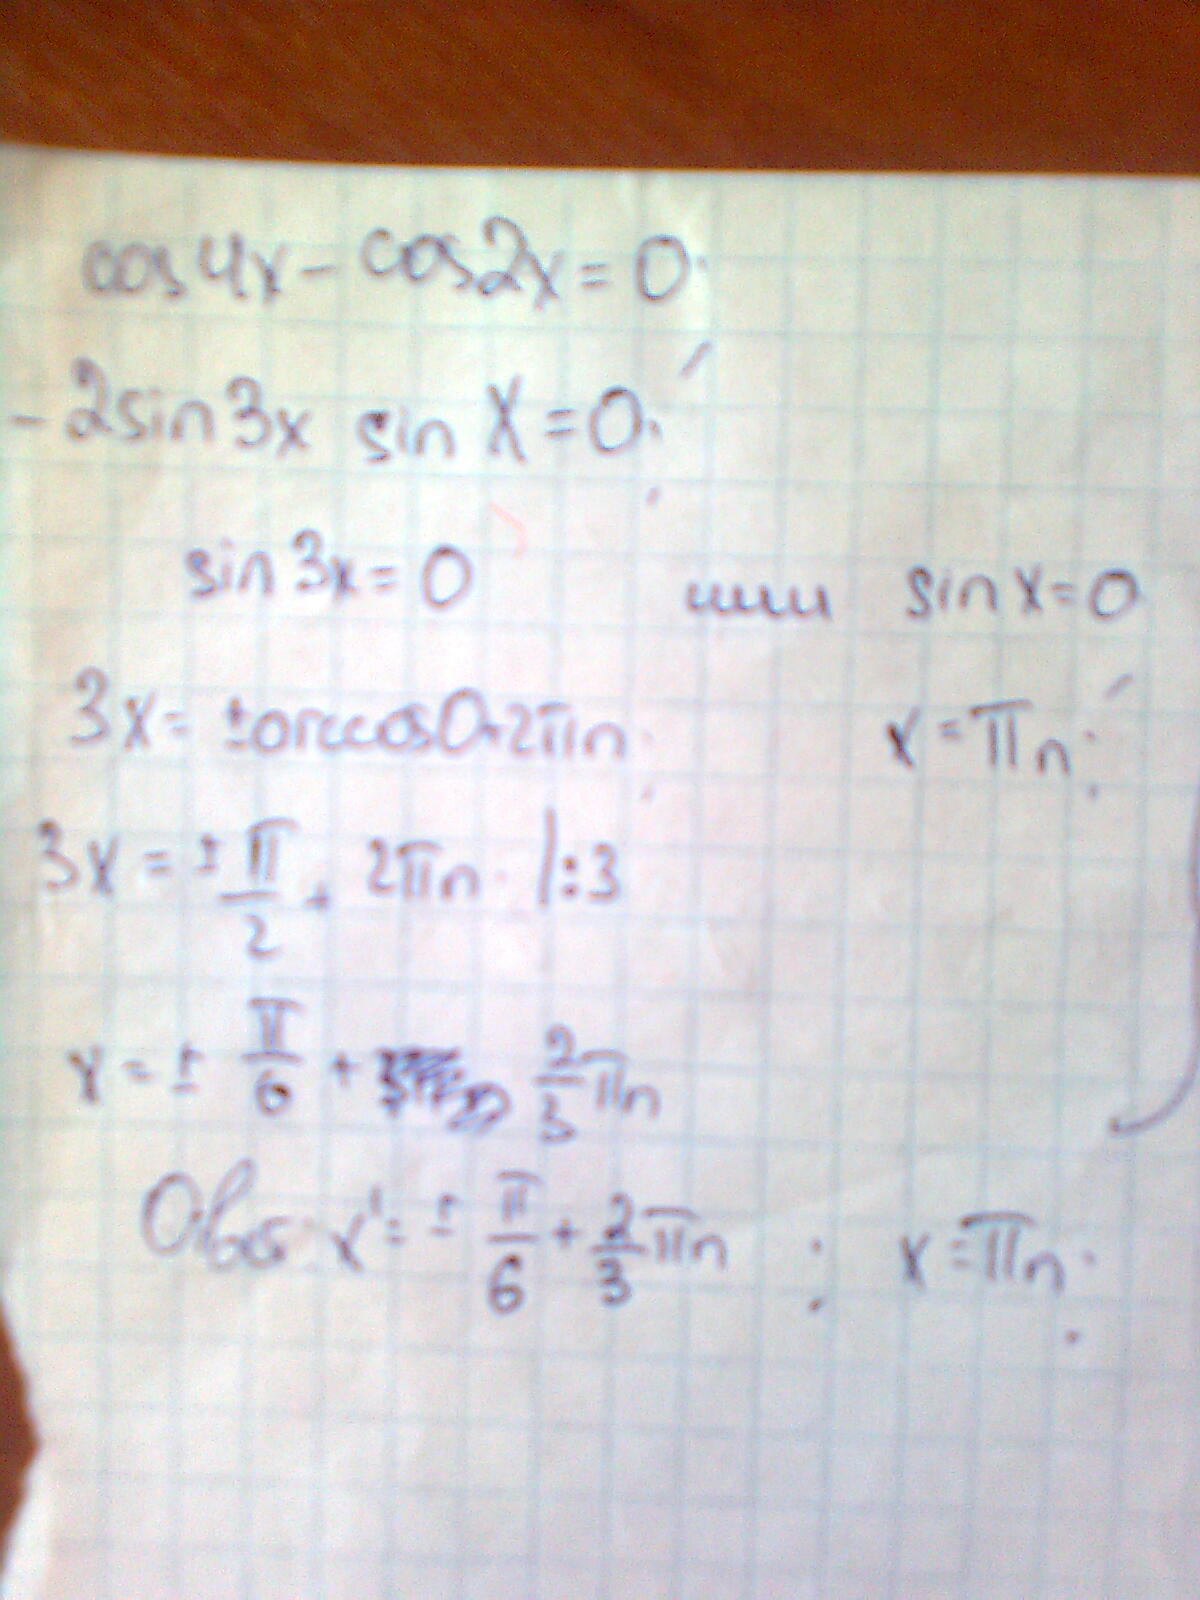 cos4x - cos2x = 0.
-2sin3x sin x = 0.
sin3x = 0 или sin x = 0
3x = ±arccos0+2πn x = πn;
3x = ±π/2 + 2πn |:3
x = ± π/6 + 2/3 πn
x = ± π/6 + 2/3 πn ; x = πn.